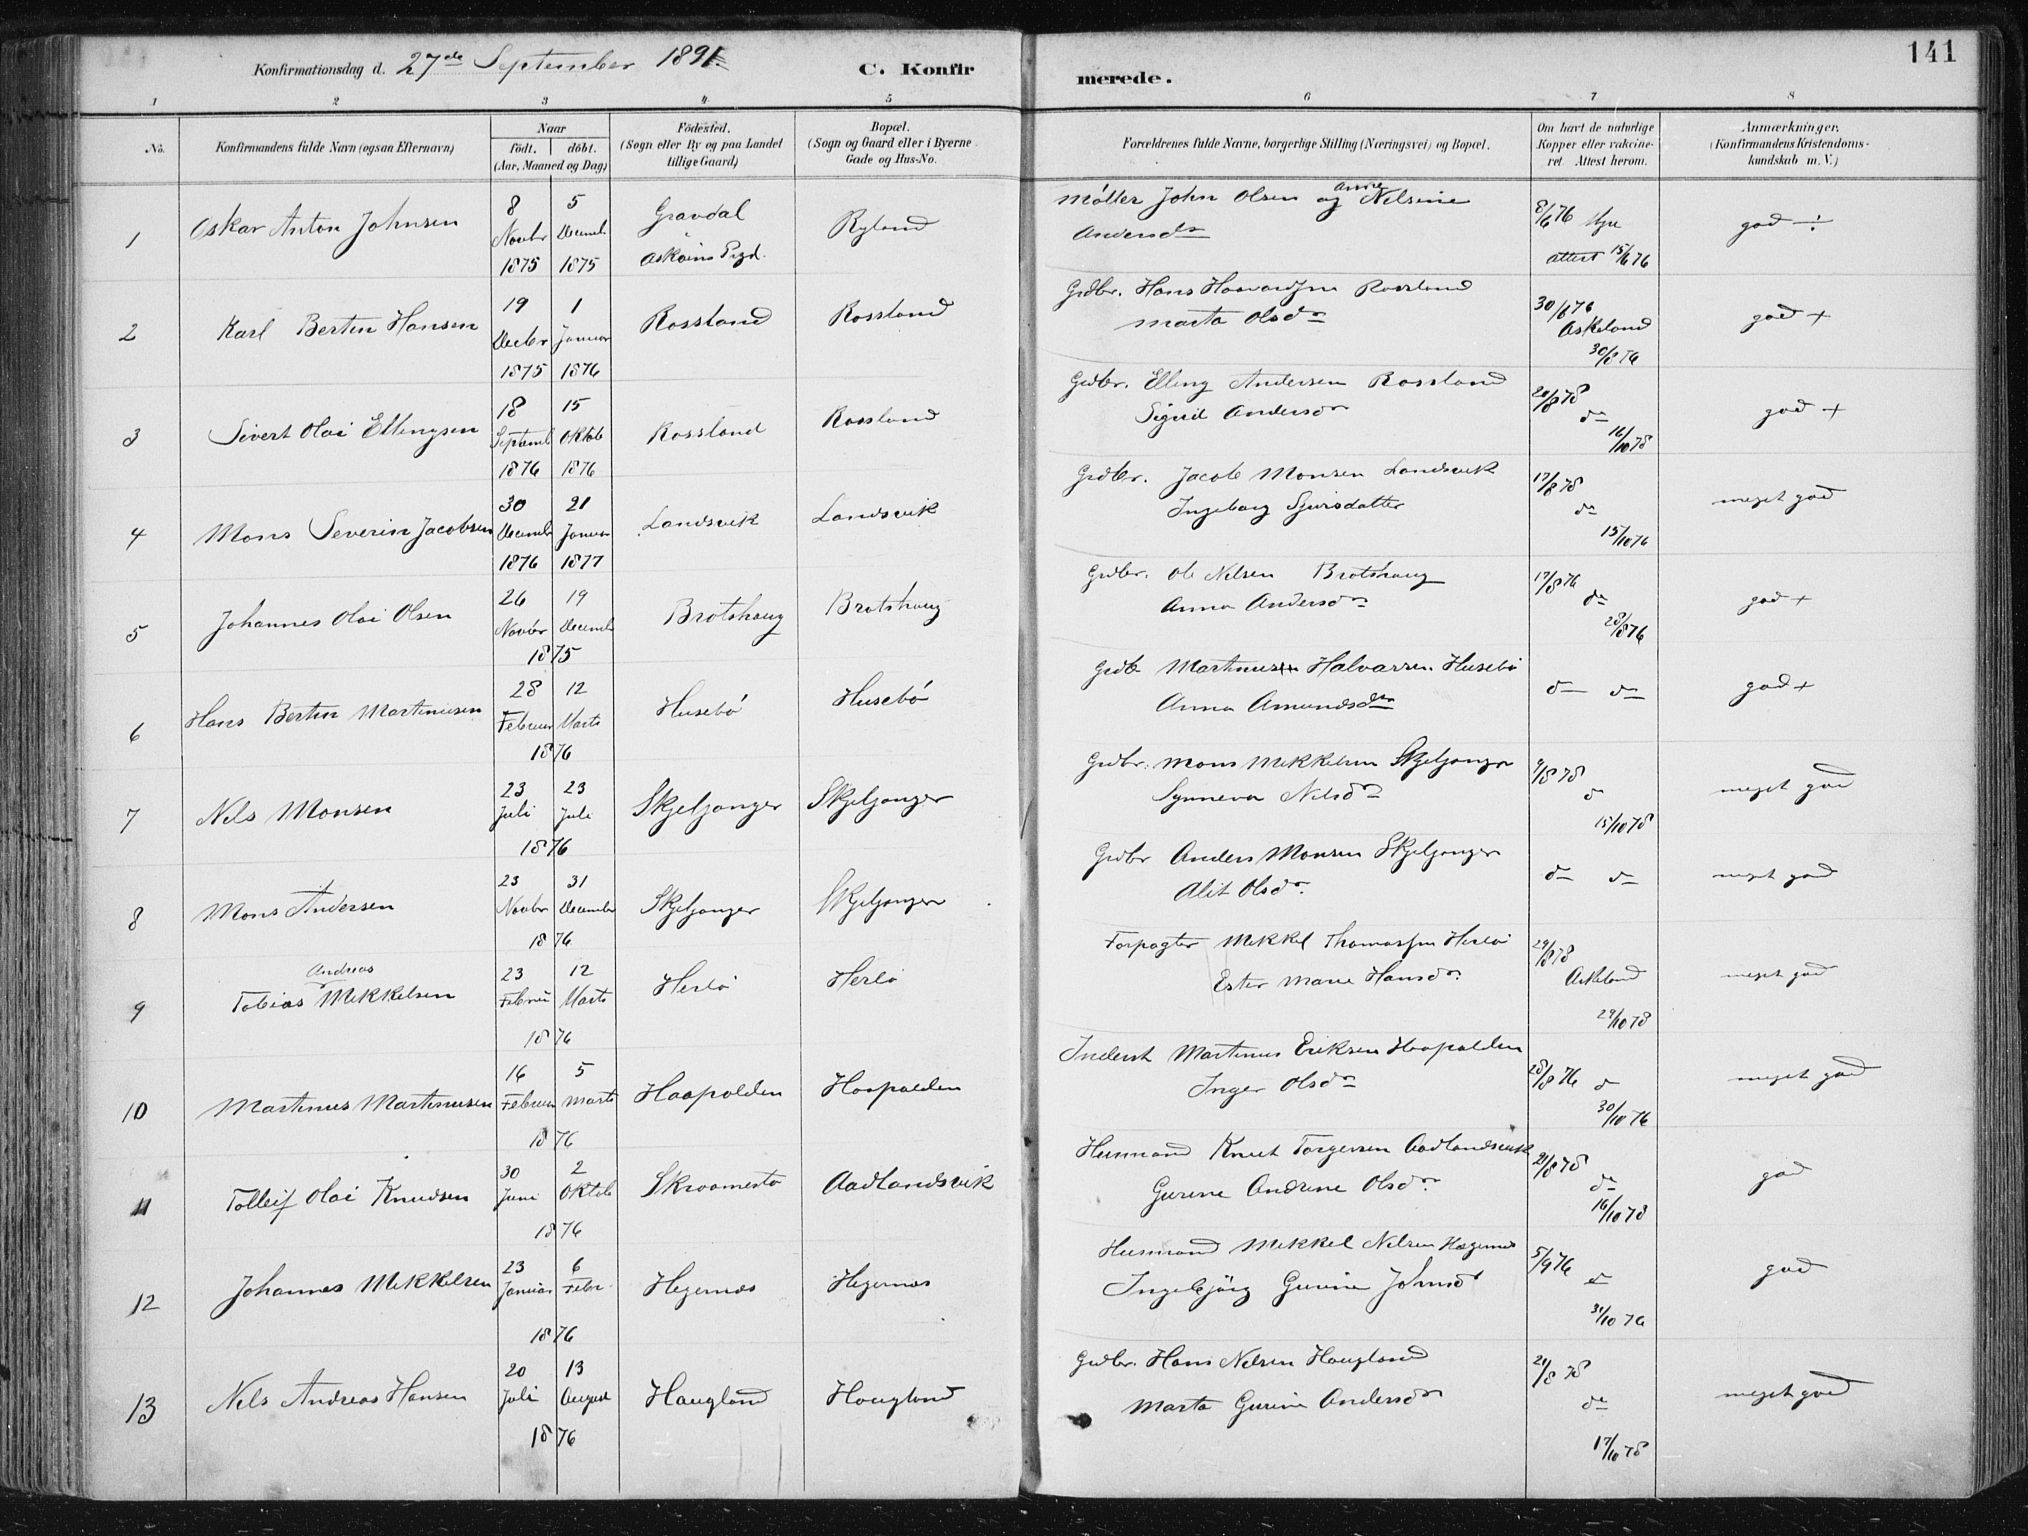 141
Konfirmationsdag d. 27de September 1891. C. Konfirmerede.
1 2 3 4 5 6 7 8
No. Konfirmandens fulde Navn (ogsaa Efternavn) Naar födt. döbt. (Aar, Maaned og Dag) Födested. (Sogn eller By og paa Landet tillige Gaard) Bopæl. (Sogn og Gaard eller i Byerne Gade og Hus-No. Forældrenes fulde Navne, borgerlige Stilling (Næringsvei) og Bopæl. Om havt de naturlige Kopper eller vaccineret. Attest herom. Anmærkninger. (Konfirmandens Kristendomskundskab m. V.)
1 Oskar Anton Johnsen 8 Novbr 1875 5 Decemb. 1875 Gravdal Askøens Prgd. Ryland Møller John Olsen og Anne Nelsine Andersdr 8/6 76 attest 15/6 76 god ÷
2 Karl Bertin Hansen 19 Decbr 1875 1 Januar 1876 Rossland Rossland Grdbr. Hans Haavardsen Rossland Marta Olsdr 30/6 76 Askeland 30/8 76 god +
3 Sivert Olai Ellingsen 18 Septemb 1876 15 Oktob 1876 Rossland Rossland Grdbr. Elling Andersen Rossland Sigrid Andersdr 20/8 78 do 16/10 78 god +
4 Mons Severin Jacobsen 30 Decemb 1876 21 Januar 1877 Landsvik Landsvik Grdbr. Jacob Monsen Landsvik Ingeborg Sjursdatter 17/8 78 do 15/10 76 meget god
5 Johannes Olai Olsen 26 Novbr 19 Decemb 1875 Brotshaug Brotshaug Grdbr. Ole Nilsen Brotshaug Anna Andersdr 17/8 76 do 28/8 76 god +
6 Hans Bertin Martinusen 28 Februar 12 Marts 1876 Husebö Husebö Grdb Martinus Halvorsen Husebö Anna Amundsdtr do do god +
7 Nels Monsen 23 Juli 23 Juli 1876 Skjeljanger Skjeljanger Grdbr. Mons Mikkelsen Skjeljanger Synneva Nilsdr 9/8 78 do 15/10 78 meget god
8 Mons Andersen 23 Novbr 31 December 1876 Skjeljanger Skjeljanger Grdbr Anders Monsen Skjeljanger Alit Olsdr. do do meget god
9 Tobias Andreas Mikkelsen 23 Februar 12 Marts 1876 Herlö Herlö Forpagter Mikkel Thomassen Herlö Ester Marie Hansdr. 29/8 78 Askeland 29/10 78 meget god
10 Martinus Martinusen 16 Februar 5 Marts 1876 Haapolden Haapolden Inderst Martinus Eriksen Haapolden Inger Olsdr 28/8 76 do 30/10 76 meget god
11 Tolleif Olai Knudsen 30 Juni 2 Oktob 1876 Skraamestö Aadlandsvik Husmand Knut Torgersen Aadlandsvik Gurine Andrine Olsdr. 21/8 78 do 16/10 78 god
12 Johannes Mikkelsen 23 Januar 6 Febr 1876 Hegernæs Hegernæs Husmand Mikkel Nilsen Hægernæs Ingebjörg Gurine Johnsd 5/9 76 do 31/10 76 god
13 Nels Andreas Hansen 20 Juli 13 August 1876 Haugland Haugland Grdbr. Hans Nelsen Haugland Marta Gurine Andersdr 21/8 78 do 17/10 78 meget god